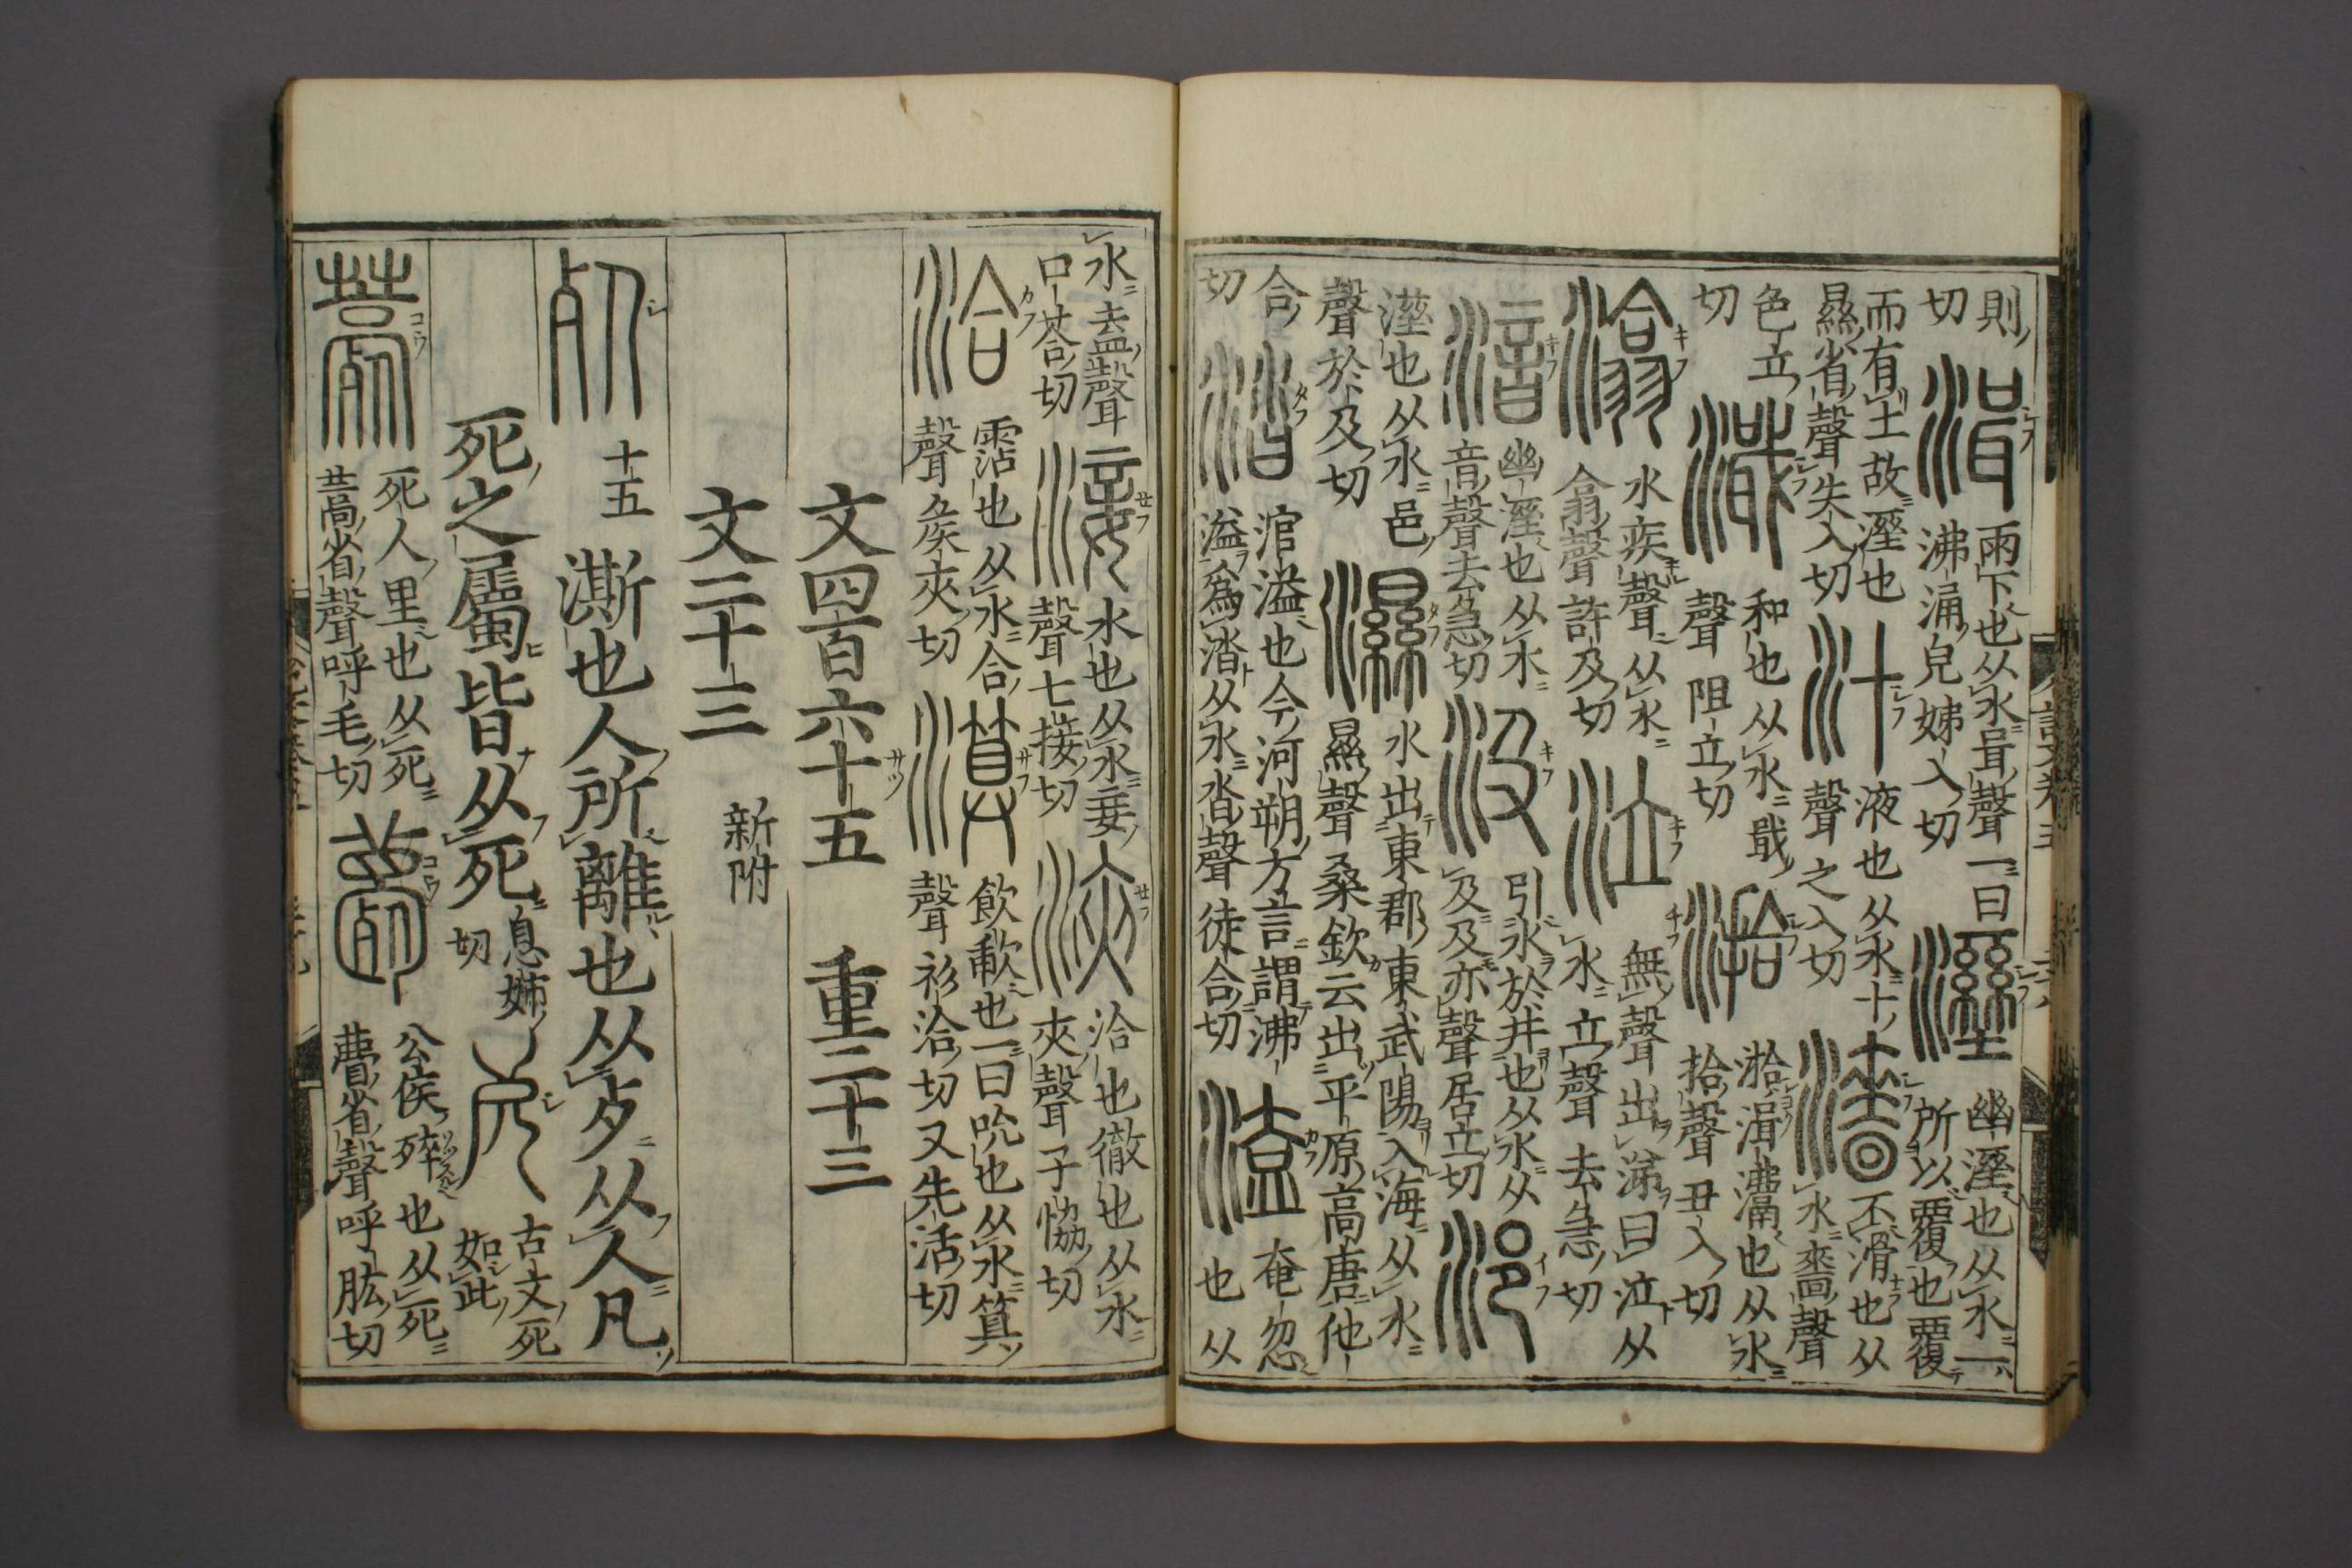 則切湒雨下也从水咠聲一曰沸涌皃姊入切溼幽溼也从水一所以覆也覆
而有土故溼也㬎省聲失入切汁液也从水十聲之入切濇不滑也从水嗇聲
色立切濈和也从水戢聲阻立切湁湁湒沸也从水拾聲丑入切
潝水疾聲从水翕聲許及切泣無聲出涕曰泣从水立聲去急切
湆幽溼也从水音聲去急切汲引水於井也从水从及及亦聲居立切浥
溼也从水邑聲於及切濕水出東郡東武陽入海从水㬎聲桑欽云出平原高唐他
合切涾涫溢也今河朔方言謂沸溢爲涾从水沓聲徒合切溘奄忽也从
水盍聲口荅切淁水也从水妾聲七接切浹洽也徹也从水夾聲子協切
洽霑也从水合聲矦夾切飲歃也一曰吮也从水算聲衫洽切又先活切
文四百六十五 重二十三
文二十三 新附
死十五澌也人所離也从歺从人凡
死之屬皆从死息姊切古文死如此
薧死人里也从死蒿省聲呼毛切薨公侯也从死瞢省聲呼肱切